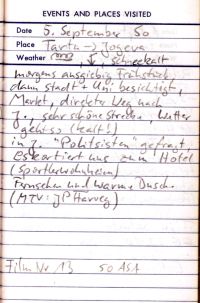 EVENTS AND PLACES VISITED
Date 5. September 50
Place Tartu -> Jogeva
Weather schneekalt
morgens ausgiebig Frühstück
dann Stadt + Uni besichtigt,
Markt, direkter Weg nach
J., sehr schöne Strecke, Wetter
geht so (kalt!)
in J. "Politsisten" gefragt,
eskortiert uns zum Hotel
(Sportlerwohnheim)
Fernseher und warme Dusche
(MTV: PJ Harvey)
Film Nr 13 50 ASA